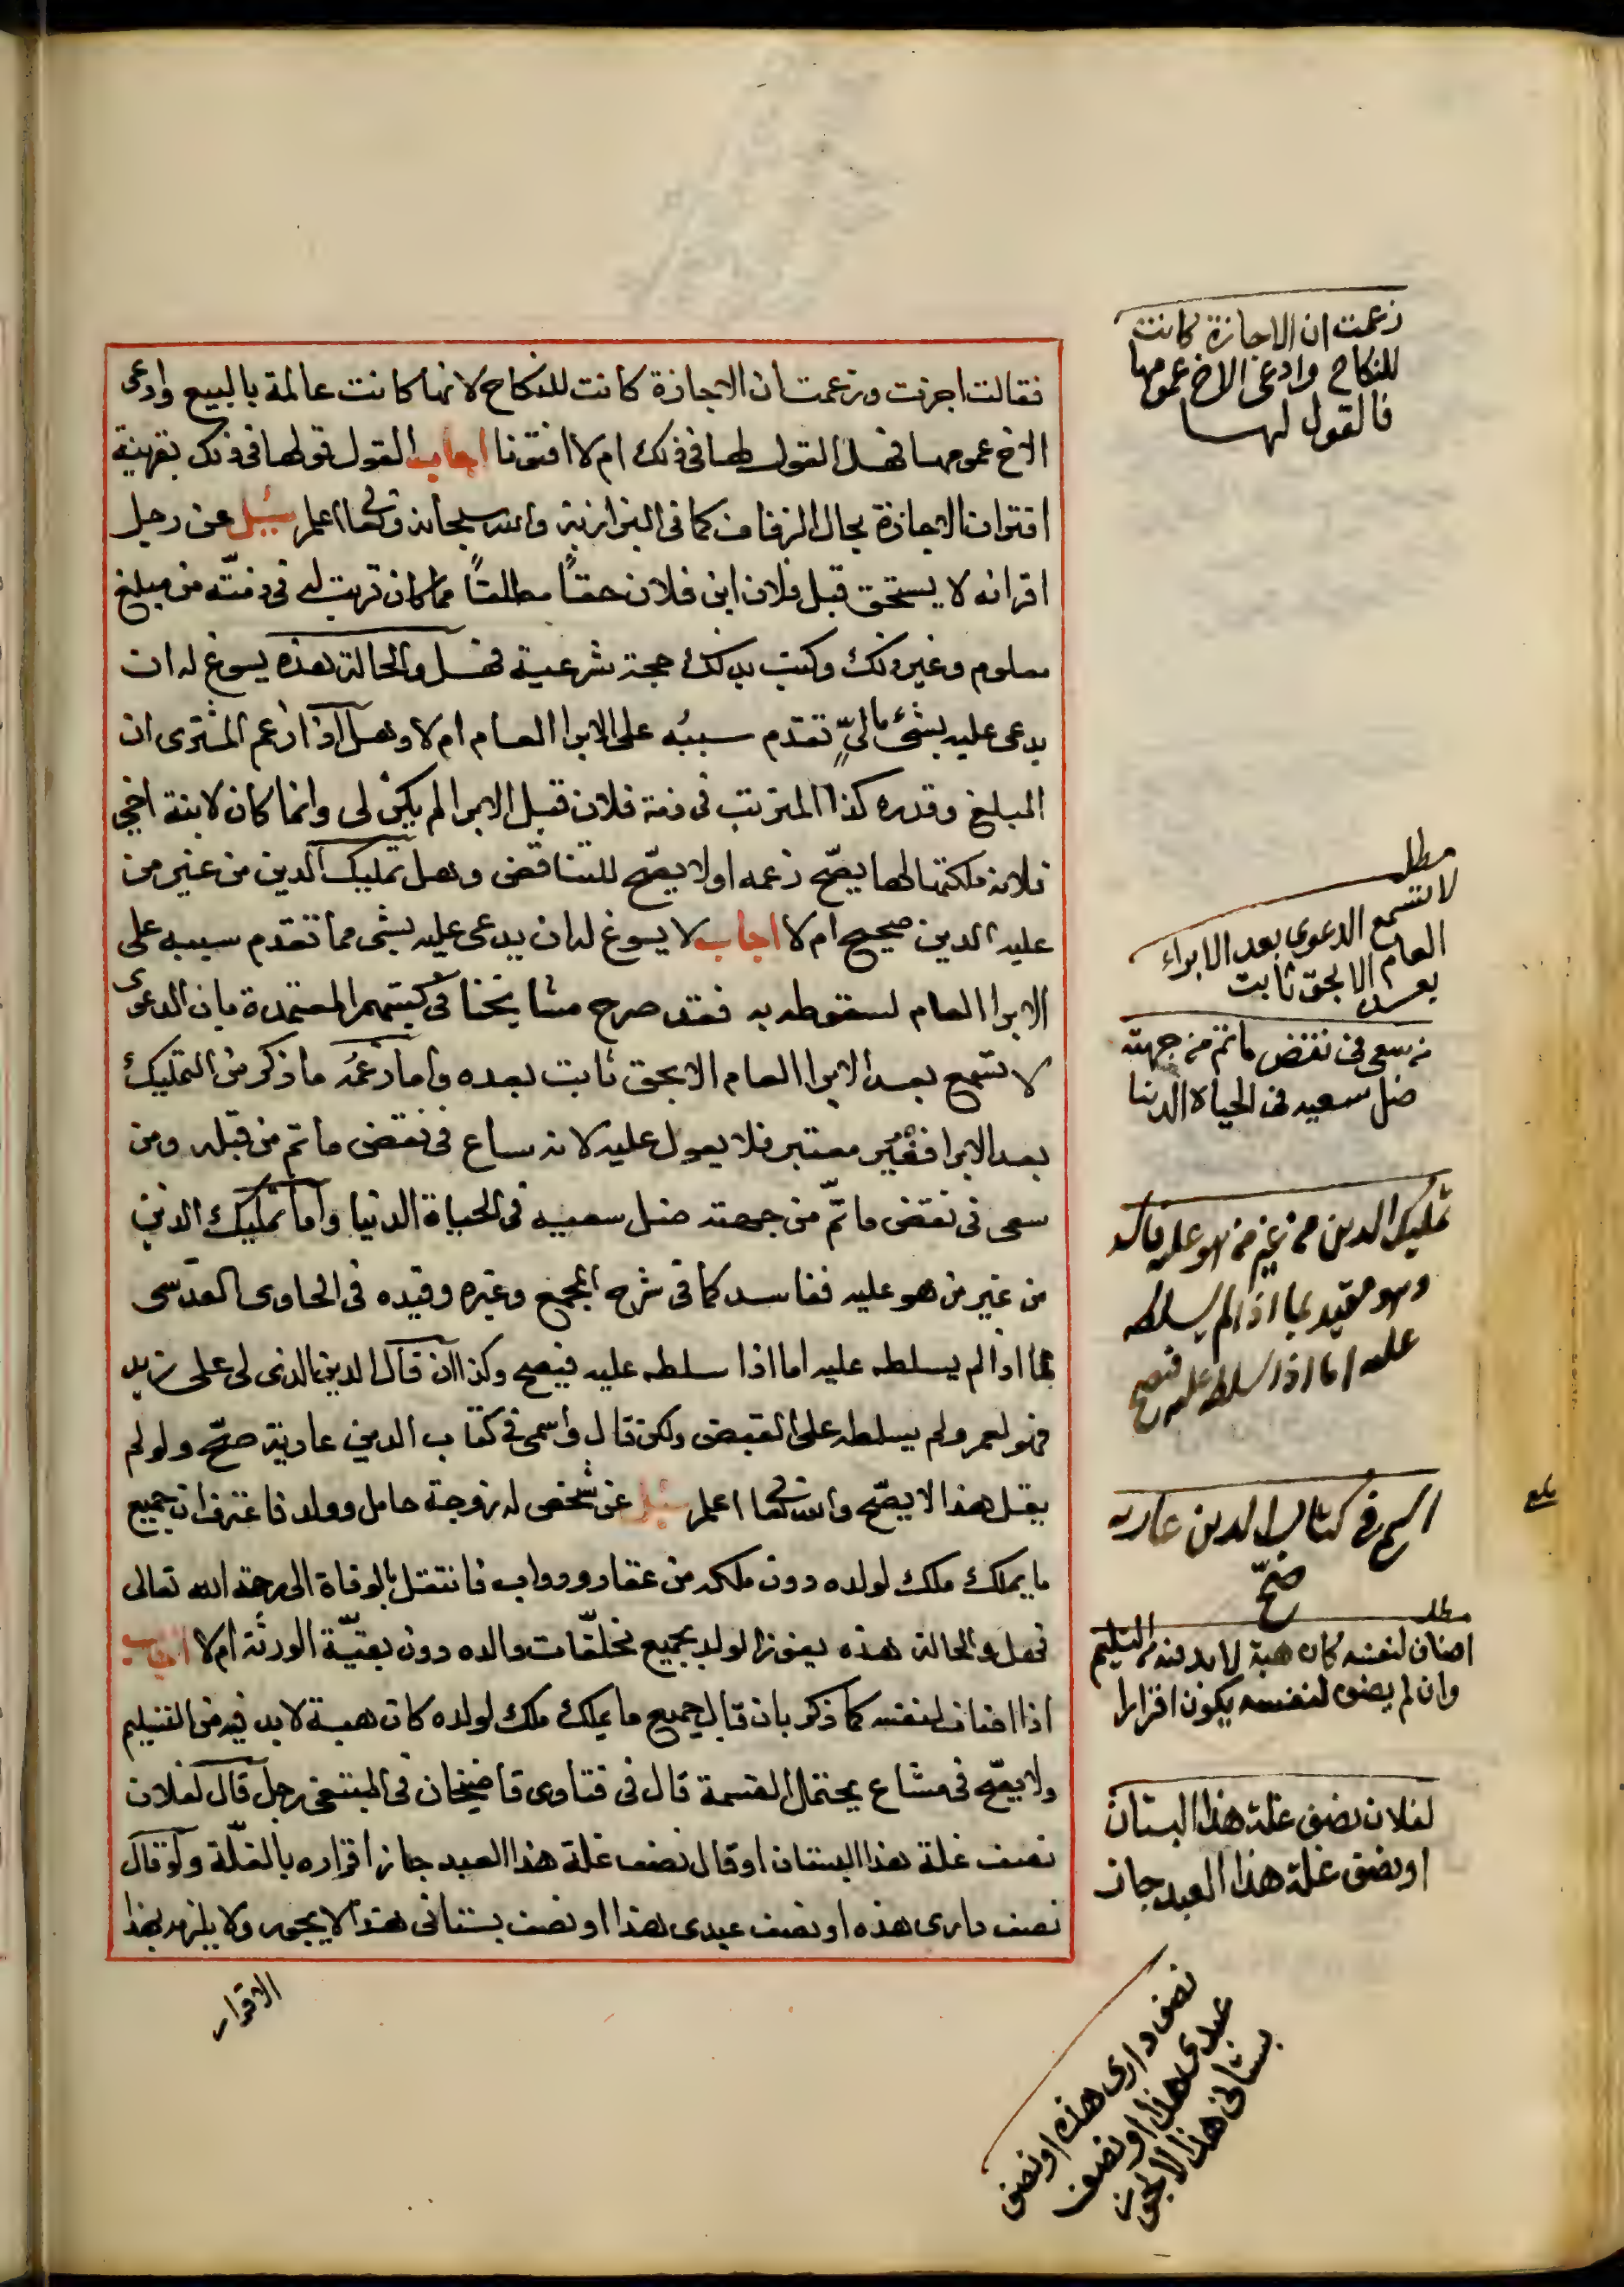 فقالت اجزت وزعمت ان الاجازة كانت للنكاح لانها كانت عالمة بالبيع وادعى
الاخ عمومها فهل القول لها في ذلك ام لا افتونا اجاب القول قولها في ذلك بقرينة
اقتران الاجازة بحال الزفاف كما في البزازية والله سبحانه وتعالى اعلم سئل عن رجل
اقر انه لا يستحق قبل فلان ابن فلان حقاً مطلقاً مما كان ترتب له في ذمته من مبلغ
معلوم وغير ذلك وكتب بذلك حجة شرعية فهل والحالة هذه يسوغ له ان
يدعى عليه بشئ ماليٍّ تقدم سببُه على الابرا العام ام لا وهل اذا زعم المشترى ان
المبلغ وقدره كذا المترتب في ذمة فلان قبل الابرا لم يكن لى وانما كان لابنة اخى
فلانة ملكتها لها يصحّ زعمه او لا يصحّ للتناقض وهل تمليك الدين من غير من
عليه الدين صحيح ام لا اجاب لا يسوغ له ان يدعى عليه بشى مما تقدم سببه على
الابرا العام لسقوطه به فقد صرح مشايخنا في كتبهم المعتمدة بان الدعوى
لا تسمع بعد الابرا العام الا بحق ثابت بعده واما زعمُه ما ذكر من التمليك
بعد الابرا فغير معتبر فلا يعول عليه لانه ساع في نقض ما تم من قبله ومن
سعى في نقض ما تمّ من جهته ضل سعيه في الحياة الدنيا واما تمليك الدين
من غير من هو عليه ففاسد كما في شرح المجمع وغيره وقيده في الحاوى القدسى
بما اذا لم يسلطه عليه اما اذا سلطه عليه فيصح وكذا ان قال الدين الذى لى على زيد
فهو لعمرو لم يسلطه على القبض ولكن قال واسمى في كتاب الدين عارية صحّ ولو لم
يقل هذا لا يصحّ والله تعالى اعلم سئل عن شخص له زوجة حامل وولد فاعترف ان جميع
ما يملك ملك لولده دون ملكه من عقار ودواب فانتقل بالوفاة الى رحمة الله تعالى
فهل والحالة هذه يفوز الولد بجميع مخلّفات والده دون بقيّة الورثة ام لا اجاب
اذا اضاف لنفسه كما ذكر بان قال جميع ما يملك ملك لولده كان هبة لا بد فيه من التسليم
ولا يصحّ في مشاع يحتمل القسمة قال في فتاوى قاضيخان في المنتقى رجل قال لفلان
نصف غلة هذا البستان او قال نصف غلة هذا العبد جاز اقراره بالغلّة ولو قال
نصف دارى هذه او نصف عبدى هذا او نصف بستانى هذا لا يجوز ولا يلزمه بهذا
الاقرار
زعمت ان الاجازة كانت
للنكاح وادعى الاخ عمومها
فالقول لها
مطلب
لا تسمع الدعوى بعد الابراء
العام الا بحق ثابت
بعده
من سعى في نقض ما تم من جهته
ضل سعيه في الحياة الدنيا
تمليك الدين من غير من هو عليه فاسد
وهو مقيد بما اذا لم يسلطه
عليه اما اذا سلطه عليه فيصح
اسمى في كتاب الدين عارية
صحّ
مطلب
اضاف لنفسه كان هبة لا بد فيه من التسليم
وان لم يضف لنفسه يكون اقرارا
لفلان نصف غلة هذا البستان
او نصف غلة هذا العبد جاز
نصف دارى هذه او نصف
عبدى هذا او نصف
بستانى هذا لا يجوز
بلغ